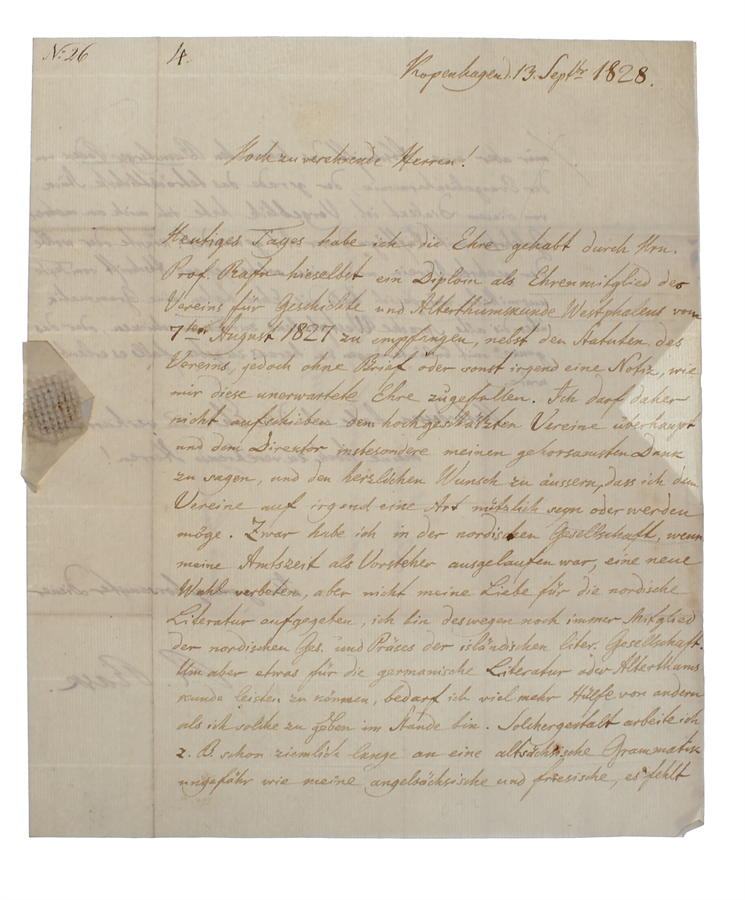 N: 26
4.
Kopenhagen d. 13. Septbr 1828.
Hoch zu verehrende Herren!
Heutiges Tages habe ich die Ehre gehabt durch Hrn.
Prof. Rafn hieselbst ein Diplom als Ehrenmitglied des
Vereins für Geschichte und Alterthumskunde Westphalens vom
7ten August 1827 zu empfangen, nebst den Statuten des
Vereins, jedoch ohne Brief oder sonst irgend eine Notiz, wie
mir diese unerwartete Ehre zugefallen. Ich darf daher
nicht aufschieben dem hochgeschätzten Vereine überhaupt
und dem Direktor insbesondere meinen gehorsamsten Dank
zu sagen, und den herzlichen Wunsch zu äussern, dass ich dem
Vereine auf irgend eine Art nützlich seyn oder werden
möge. Zwar habe ich in der nordischen Gesellschaft, wenn
meine Amtszeit als Vorsteher ausgelaufen war, eine neue
Wahl verbeten, aber nicht meine Liebe für die nordische
Literatur aufgegeben, ich bin deswegen noch immer Mitglied
der nordischen Ges. und Präses der isländischen liter. Gesellschaft.
Um aber etwas für die germanische Literatur oder Alterthums
kunde leisten zu können, bedarf ich viel mehr Hülfe von andern
als ich solche zu geben im Stande bin. Solchergestalt arbeite ich
z. B. schon ziemlich lange an eine altsächsische Grammatik
ungefähr wie meine angelsächsische und friesische, es fehlt